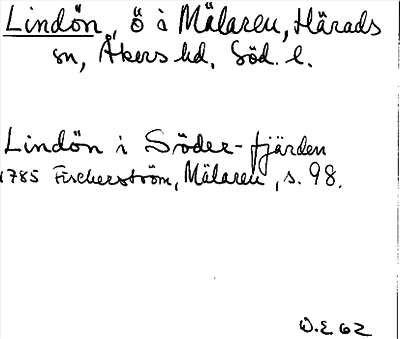 Lindön, ö i Mälaren, Härads
sn, Åkers hd, Söd. l.
Lindön i Söder-fjärden
1785 Fischerström, Mälaren, s. 98.
W.E. 62